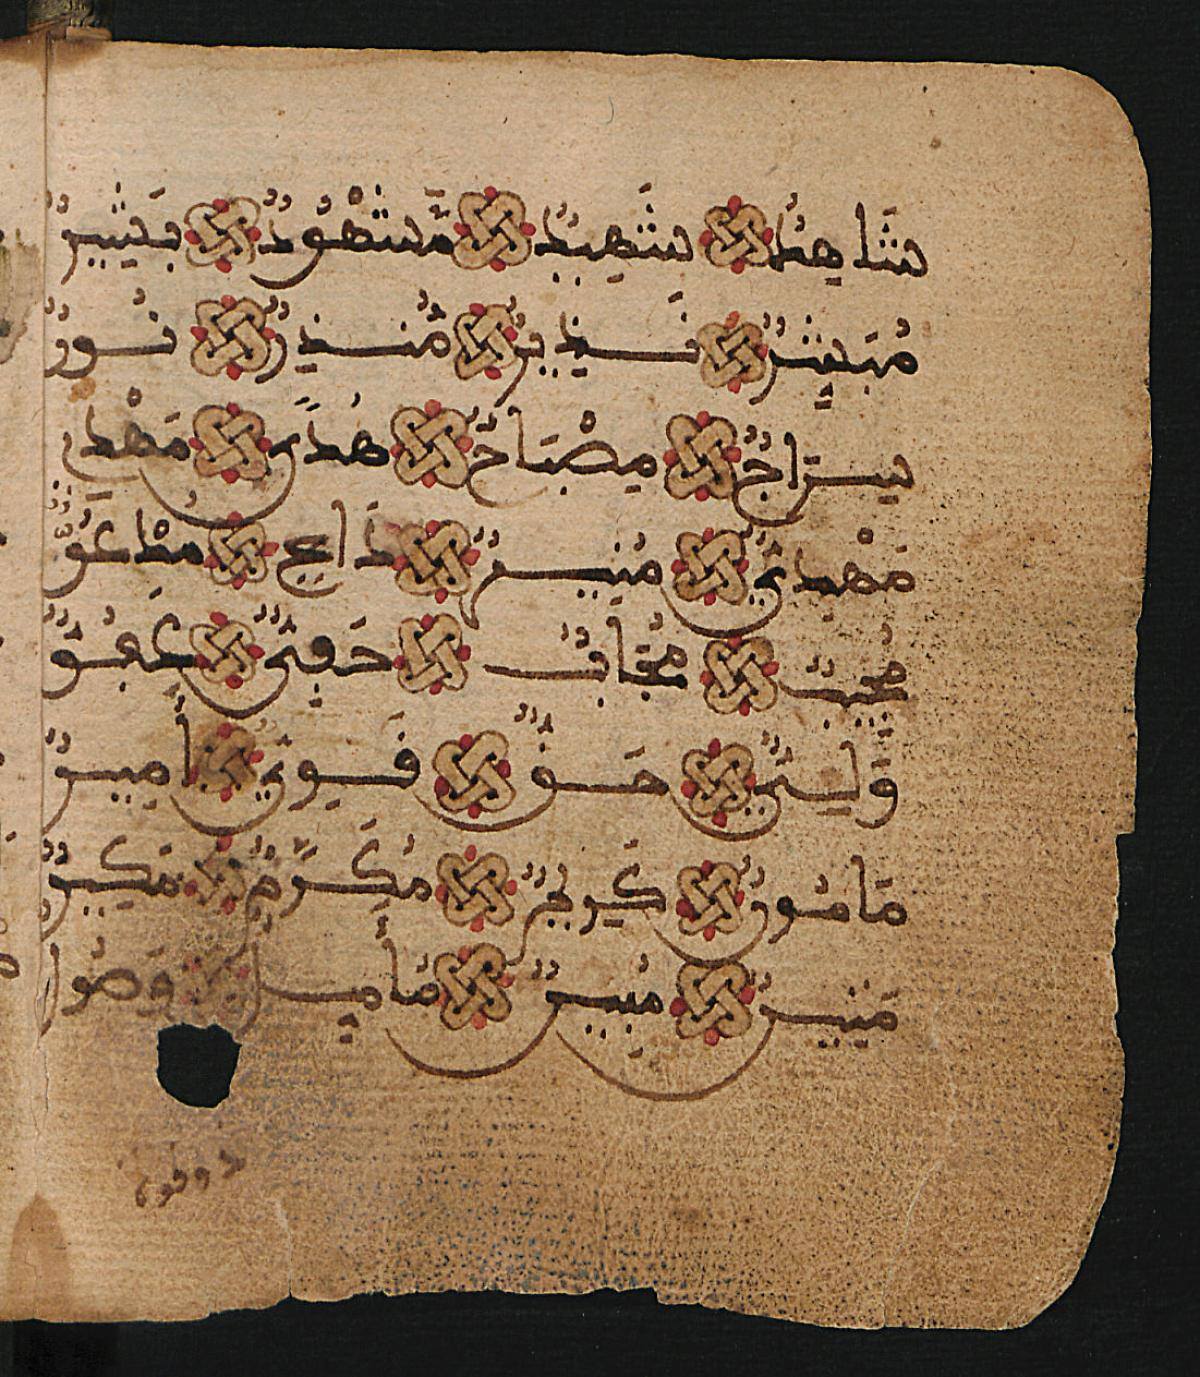 شَاهِدٌ شَهِيدٌ مَّشْهُودٌ بَشِيرٌ
مُبَشِّرٌ نَذِيرٌ مُنذِرٌ نُورٌ
سِرَاجٌ مِصْبَاحٌ هُدًى مَهْدِي
مَهْدِيٌّ مُنِيرٌ دَاعٍ مَدْعُوٌّ
مُجِيبٌ مُجَابٌ حَفِيٌّ عَفُوٌّ
وَلِيٌّ حَقٌّ قَوِيٌّ أَمِينٌ
مَامُونٌ كَرِيمٌ مُكَرَّمٌ مَكِينٌ
مَتِينٌ مُبِينٌ وَصُولٌ
ذو قوة